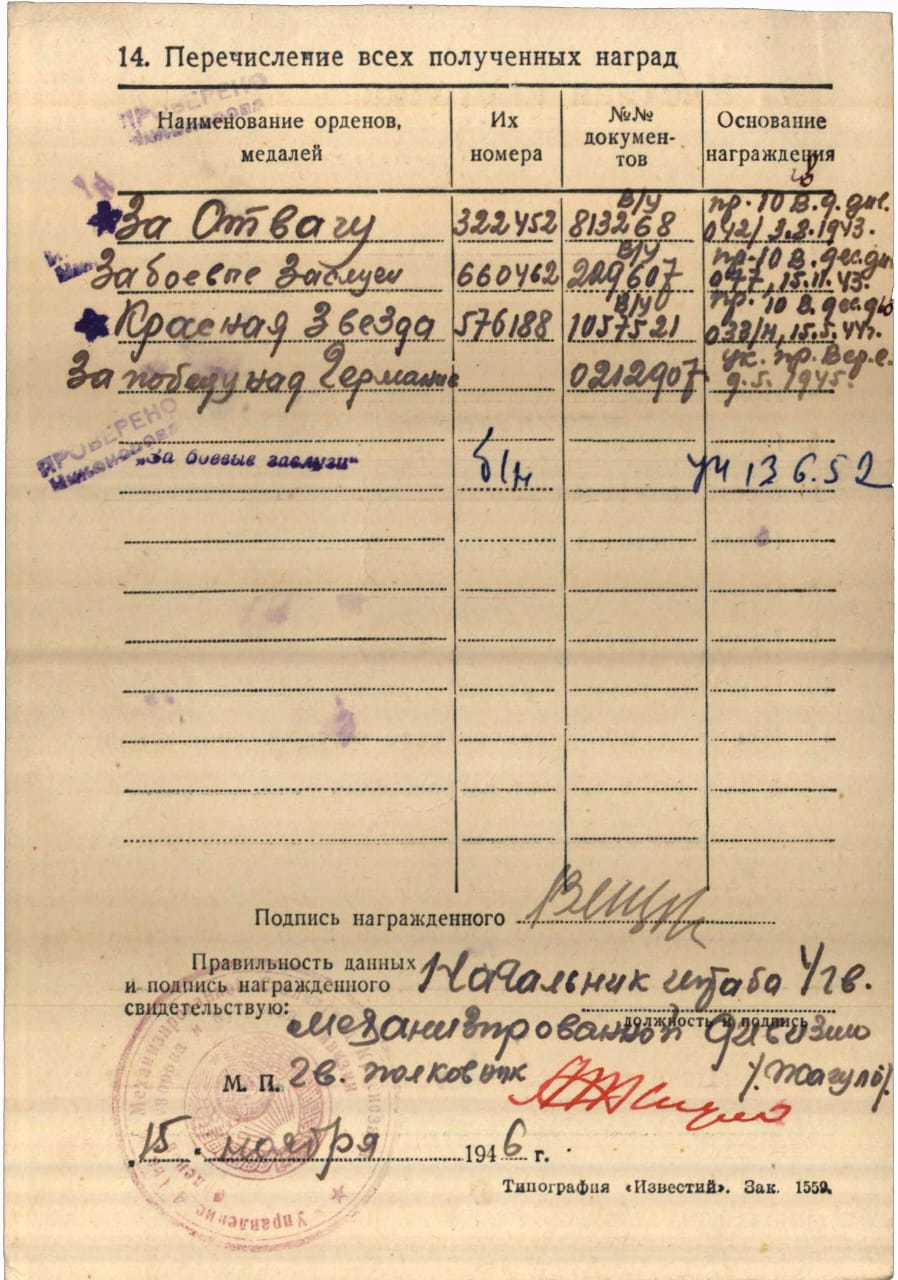 14. Перечисление всех полученных наград
ПРОВЕРЕНО
Наименование орденов, медалей
Их номера
№№ документов
Основание награждения
За Отвагу 322452 в/у 813268 пр. 10 в. д. 042/ 3.1943.
За боевые Заслуги 660462 в/у 229607 пр. 10 в. дес. 077, 15.11.43.
Красная Звезда 576188 в/у 1057521 пр. 10 в. дес. 033/н, 15.5.44г.
За победу над Германие 0212907 ук. пр. Вер. с. 9.5. 1945.
ПРОВЕРЕНО
„За боевые заслуги“ б/н 13 6.52
Подпись награжденного
Правильность данных
и подпись награжденного
свидетельствую:
Начальник штаба 4 гв.
должность и подпись
механизированной дивизии
М. П. гв. полковник /. Жагуло/.
„15. ноября 1946 г.
Управление
Типография «Известий». Зак. 1559.